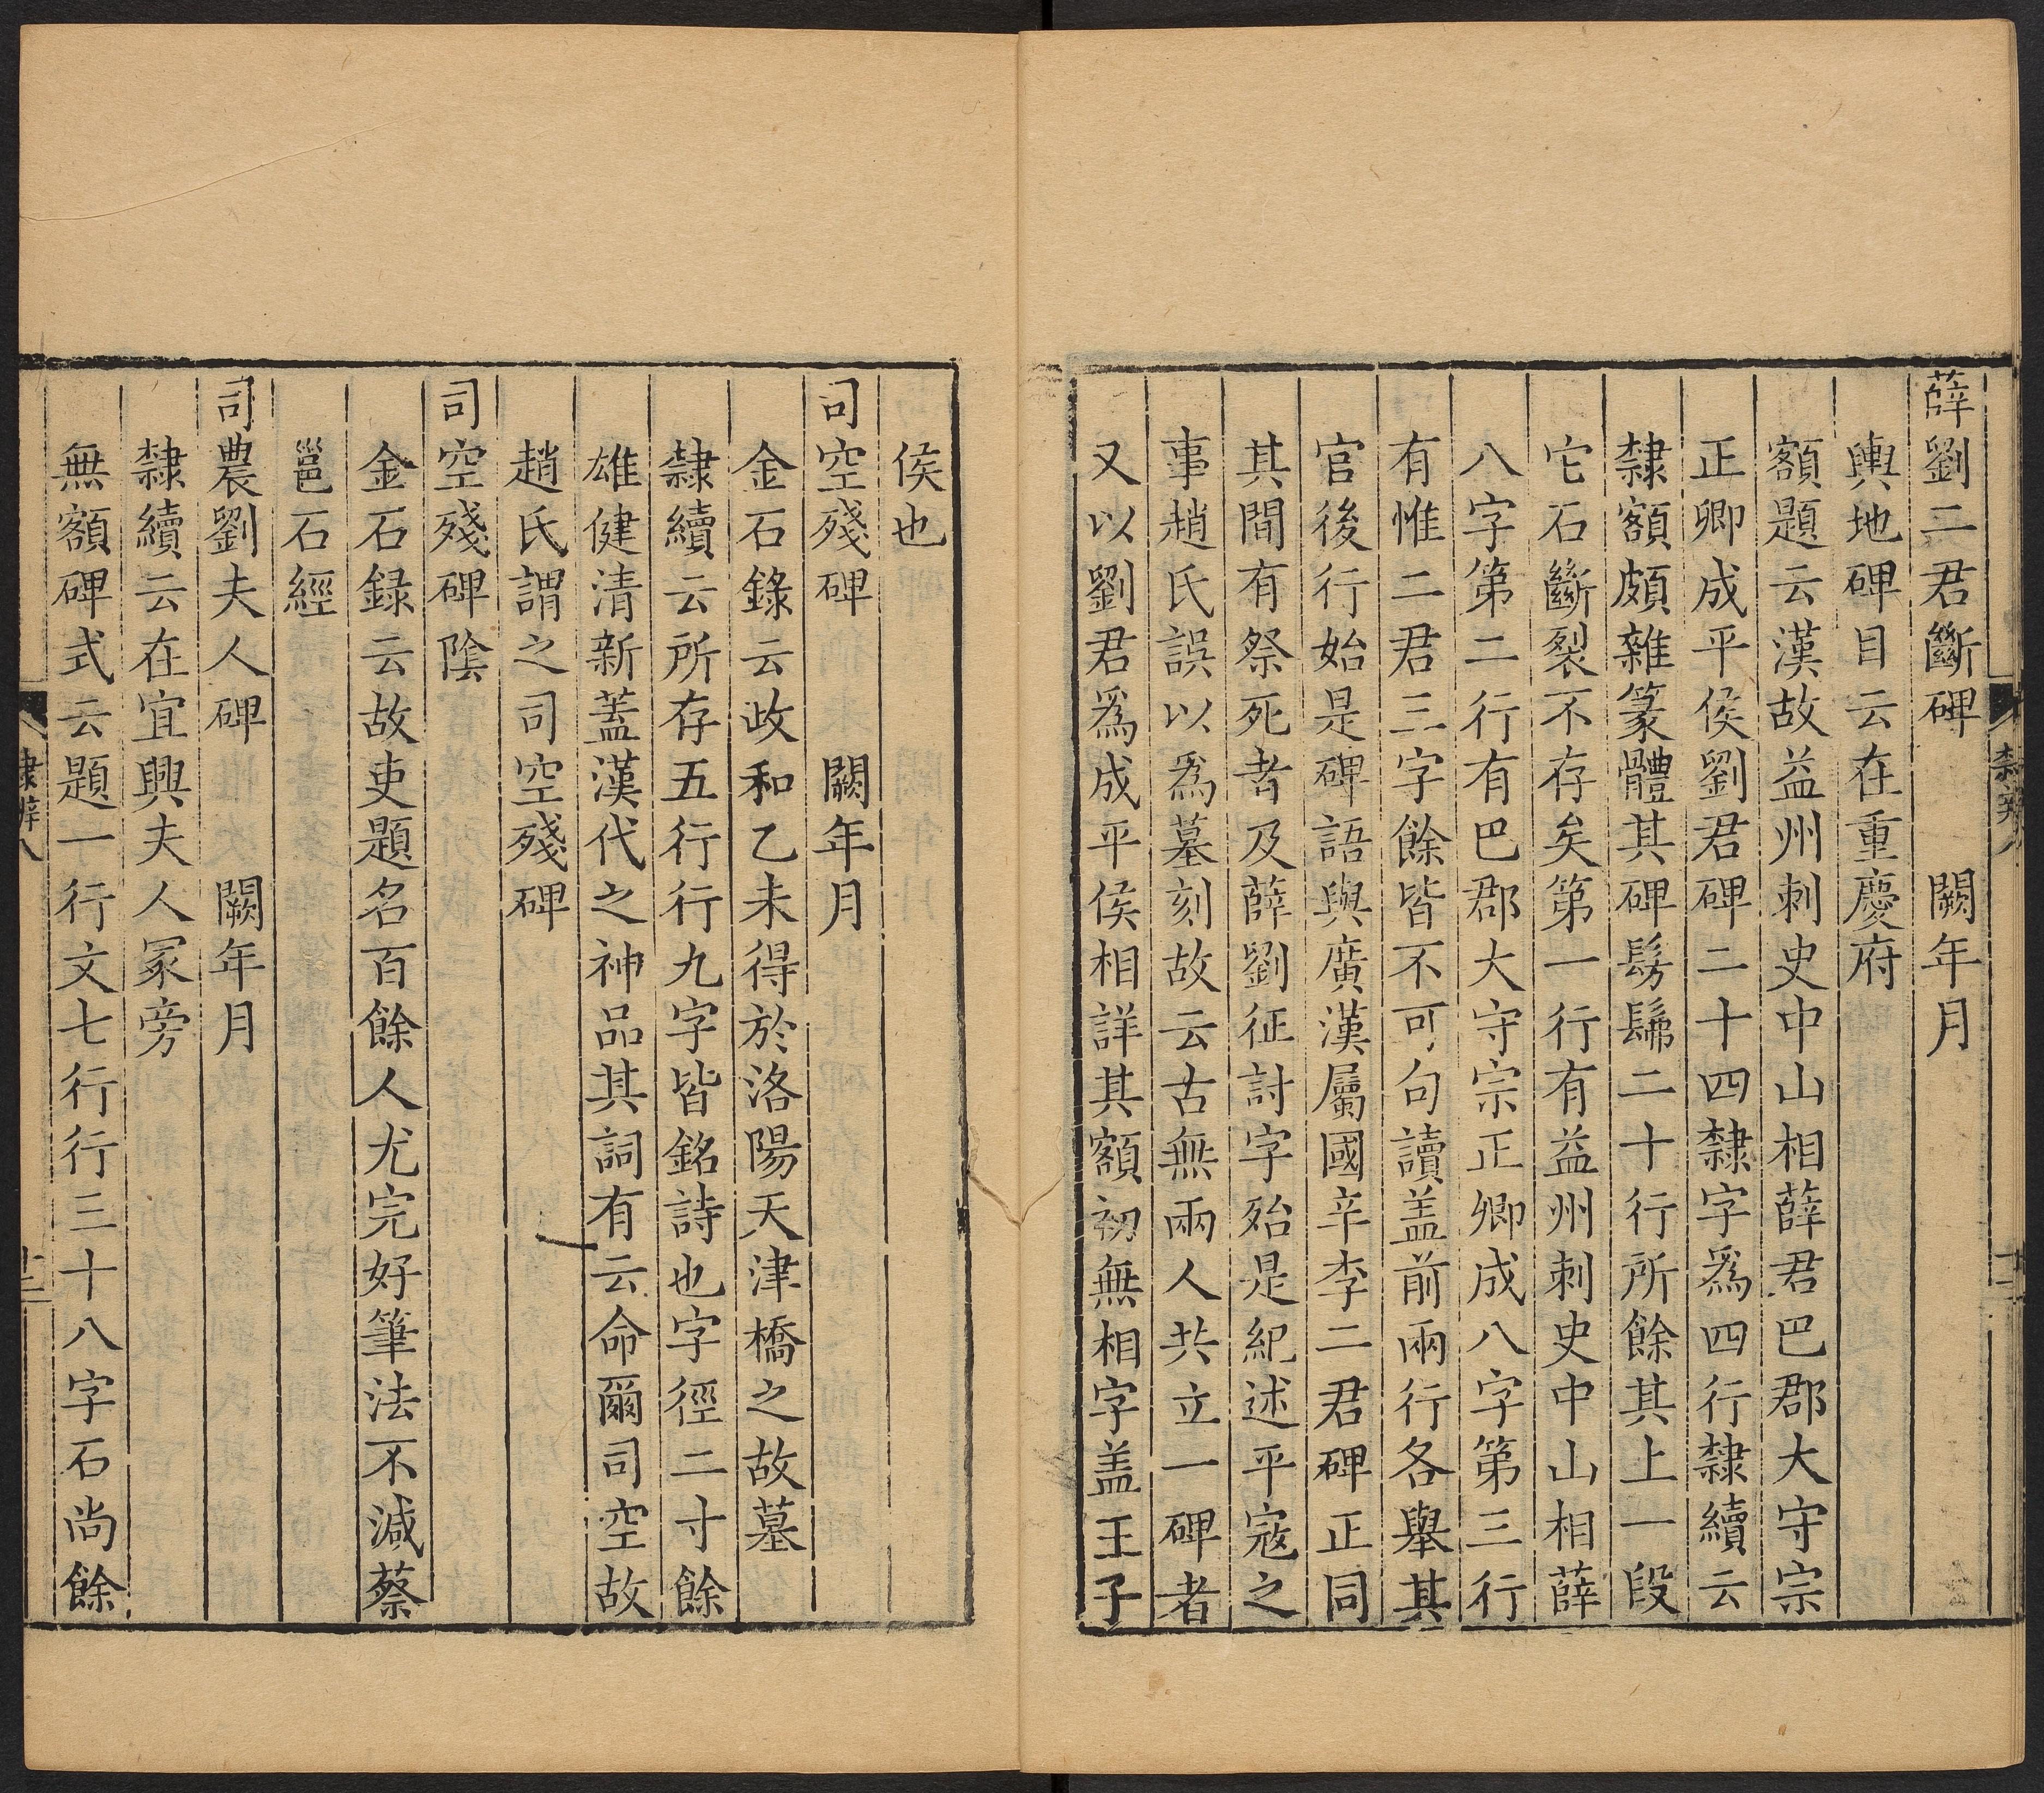 薛劉二君斷碑　闕年月
輿地碑目云在重慶府
額題云漢故益州刺史中山相薛君巴郡大守宗
正卿成平侯劉君碑二十四隸字爲四行隸續云
隸額頗雜篆體其碑髣髴二十行所餘其上一段
它石斷裂不存矣第一行有益州刺史中山相薛
八字第二行有巴郡大守宗正卿成八字第三行
有惟二君三字餘皆不可句讀盖前兩行各舉其
官後行始是碑語與廣漢屬國辛李二君碑正同
其間有祭死者及薛劉征討字殆是紀述平寇之
事趙氏誤以爲墓刻故云古無兩人共立一碑者
又以劉君爲成平侯相詳其額初無相字盖王子
侯也
司空殘碑　闕年月
金石錄云政和乙未得於洛陽天津橋之故墓
隸續云所存五行行九字皆銘詩也字徑二寸餘
雄健清新蓋漢代之神品其詞有云命爾司空故
趙氏謂之司空殘碑
司空殘碑陰
金石録云故吏題名百餘人尤完好筆法不減蔡
邕石經
司農劉夫人碑　闕年月
隸續云在宜興夫人冢旁
無額碑式云題一行文七行行三十八字石尚餘
隸辨八
十二